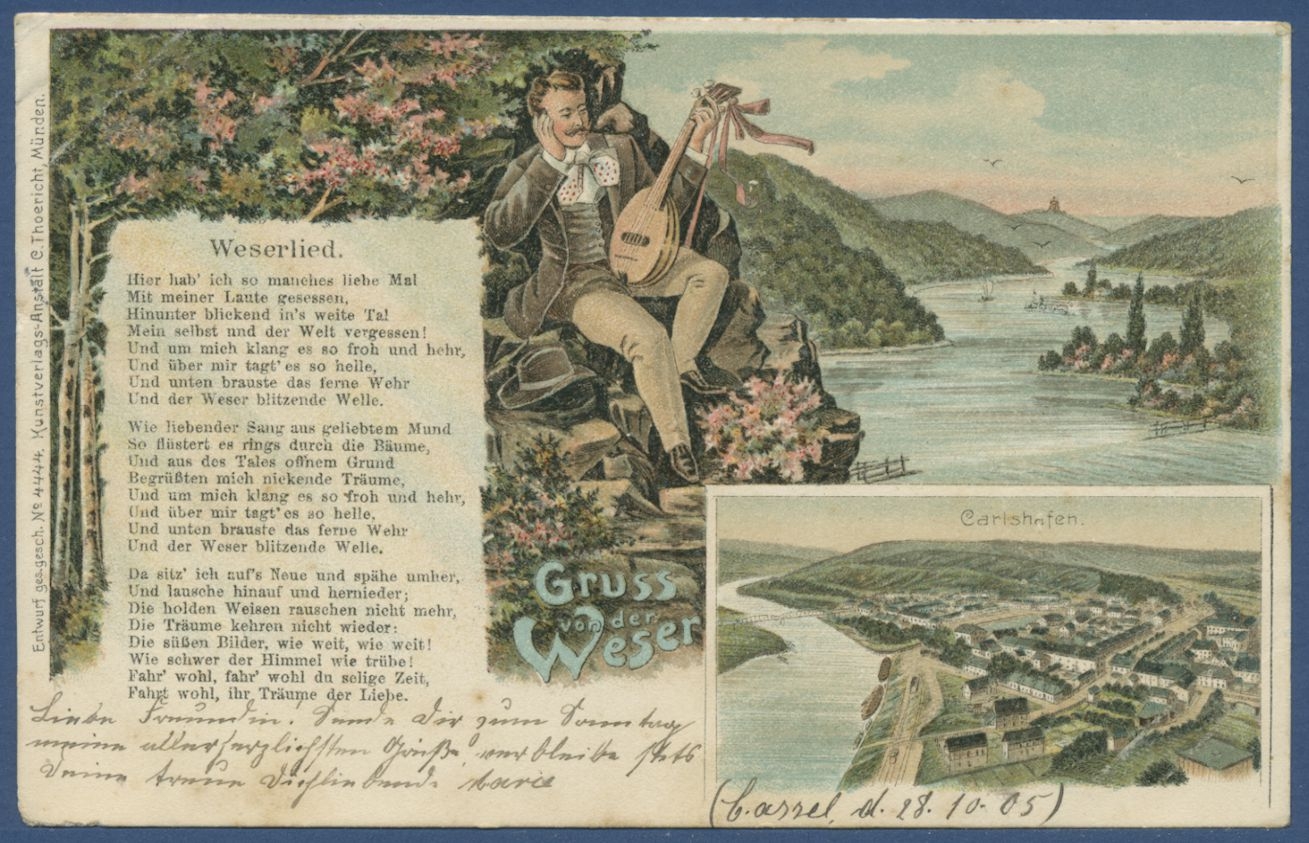 Entwurf ges. gesch. No 4444, Kunstverlags-Anstalt C. Thoericht, Münden.
Weserlied.
Hier hab' ich so manches liebe Mal
Mit meiner Laute gesessen,
Hinunter blickend in's weite Tal
Mein selbst und der Welt vergessen!
Und um mich klang es so froh und hehr,
Und über mir tagt' es so helle,
Und unten brauste das ferne Wehr
Und der Weser blitzende Welle.
Wie liebender Sang aus geliebtem Mund
So flüstert es rings durch die Bäume,
Und aus des Tales off'nem Grund
Begrüßten mich nickende Träume,
Und um mich klang es so froh und hehr,
Und über mir tagt' es so helle,
Und unten brauste das ferne Wehr
Und der Weser blitzende Welle.
Da sitz' ich auf's Neue und spähe umher,
Und lausche hinauf und hernieder;
Die holden Weisen rauschen nicht mehr,
Die Träume kehren nicht wieder:
Die süßen Bilder, wie weit, wie weit!
Wie schwer der Himmel wie trübe!
Fahr' wohl, fahr' wohl du selige Zeit,
Fahrt wohl, ihr Träume der Liebe.
Gruss
von der
Weser
Carlshafen.
Liebe Freundin. Sende Dir zum Sonntag
meine allerherzlichsten Grüße, verbleibe stets
Deine treue Dichliebende Marie
(Cassel, d. 28. 10. 05)